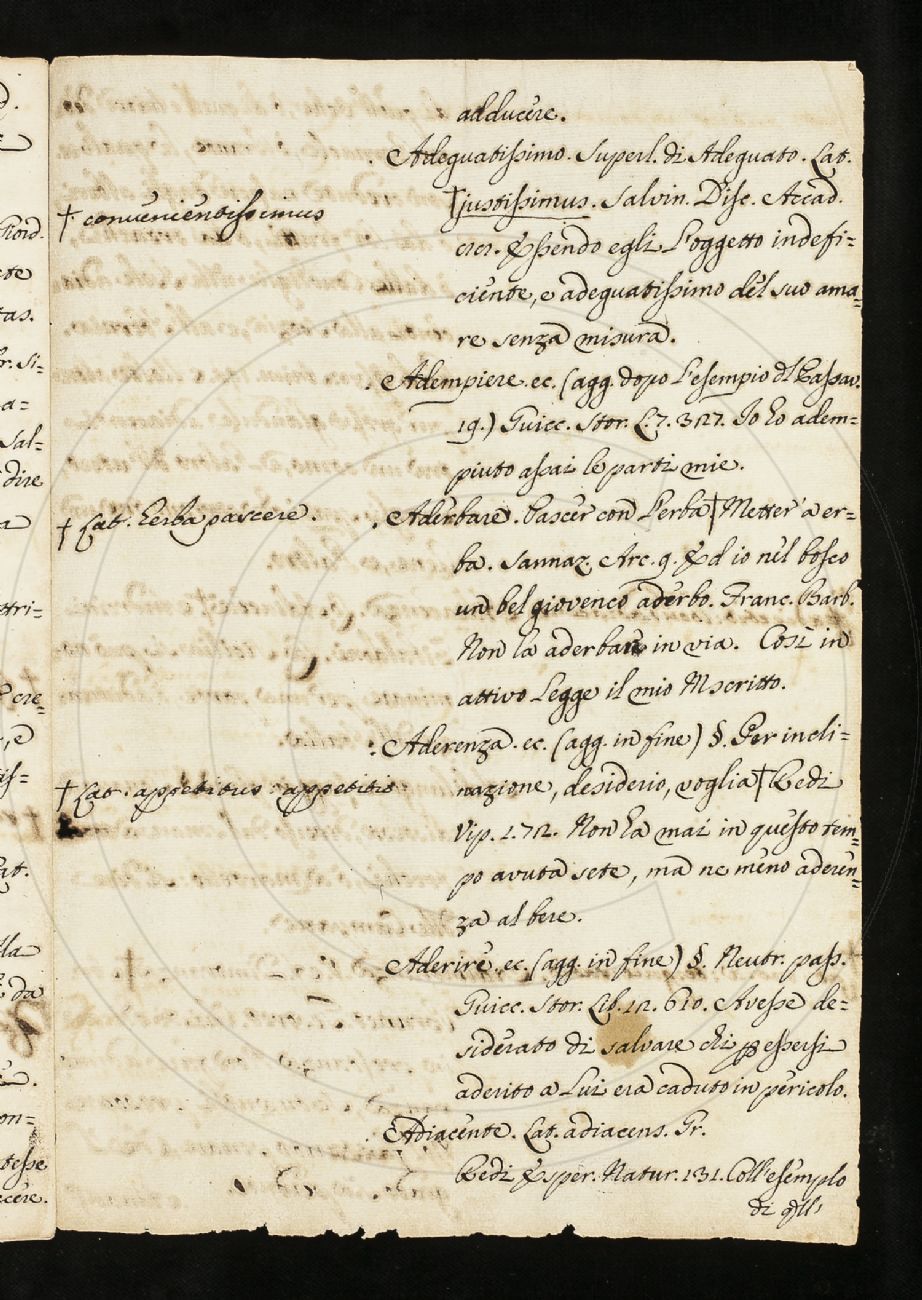 adducere.
Adeguatissimo. Superl. di Adeguato. Lat.
† justissimus. Salvin. Disc. Accad.
Essendo egli l'oggetto indefi=
ciente, e adeguatissimo del suo ama=
re senza misura.
† convenientissimus
Adempiere. ec. (agg. dopo l'esempio di Passav.
19.) Guicc. Stor. L. 7. 327. Io ho adem=
piuto assai le parti mie.
Aderbare. Pascer con l'erba † Metter' a er=
ba. Sannaz. Arc. 9. Ed io nel bosco
un bel giovenco aderbo. Franc. Barb.
Non la aderban in via. Così in
attivo legge il mio Mscritto.
† Lat. herba pascere.
Aderenza. ec. (agg. in fine) §. Per incli=
nazione, desiderio, voglia † Redi
Vip. 1. 72. Non ha mai in questo tem=
po avuta sete, ma ne meno aderen=
za al bere.
† Lat. appetitus appetitio
Aderire. ec. (agg. in fine) §. Neutr. pass.
Guicc. Stor. Lib. 12. 610. Avesse de=
siderato di salvare chi p essersi
aderito a Lui era caduto in pericolo.
Adiacente. Lat. adiacens. Gr.
Redi Esper. Natur. 131. Coll'esemplo
di qll'